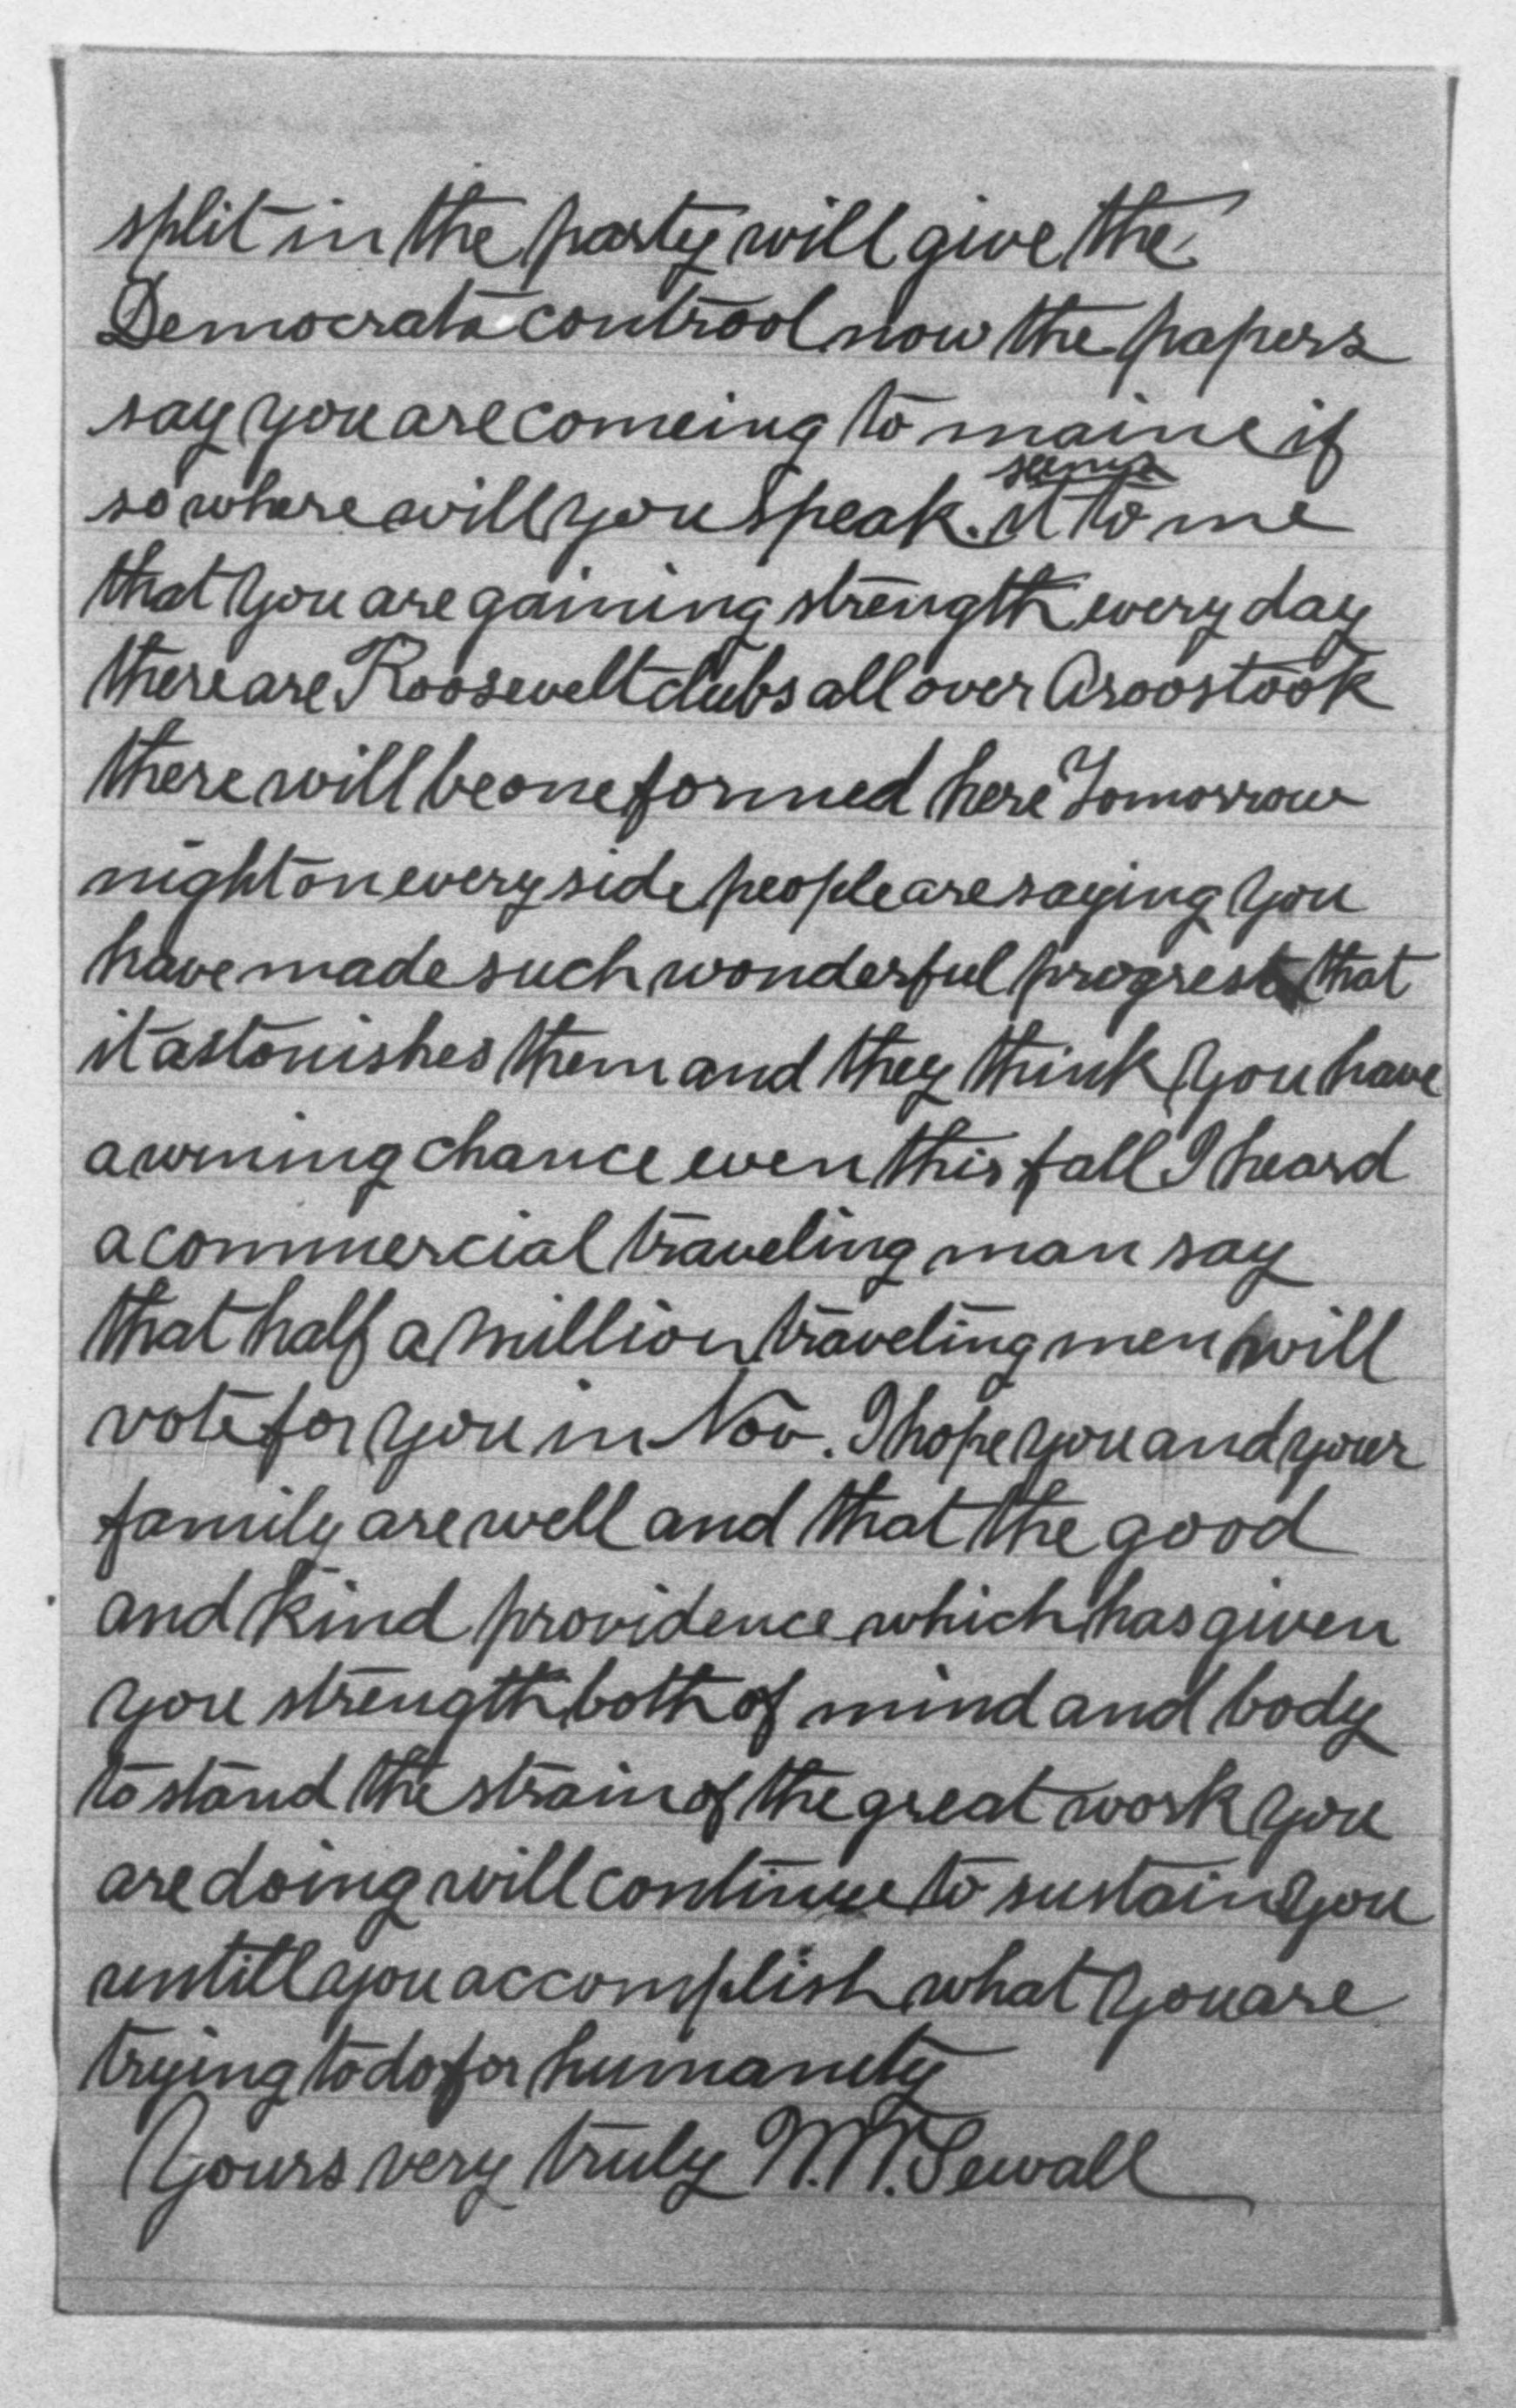 split in the party will give the
Democrats controol now the papers
say you are comeing to maine if
so where will you speak. it seems to me
that you are gaining strength every day
there are Roosevelt clubs all over Aroostook
there will be one formed here Tomorrow
night on every side people are saying you
have made such wonderful progress that
it astonishes them and they think you have
a wining chance even this fall I heard
a commercial traveling man say
that half a million traveling men will
vote for you in Nov. I hope you and your
family are well and that the good
and kind providence which has given
you strength both of mind and body
to stand the strain of the great work you
are doing will continue to sustain you
untill you accomplish what you are
trying to do for humanity
Yours very truly W. W. Sewall